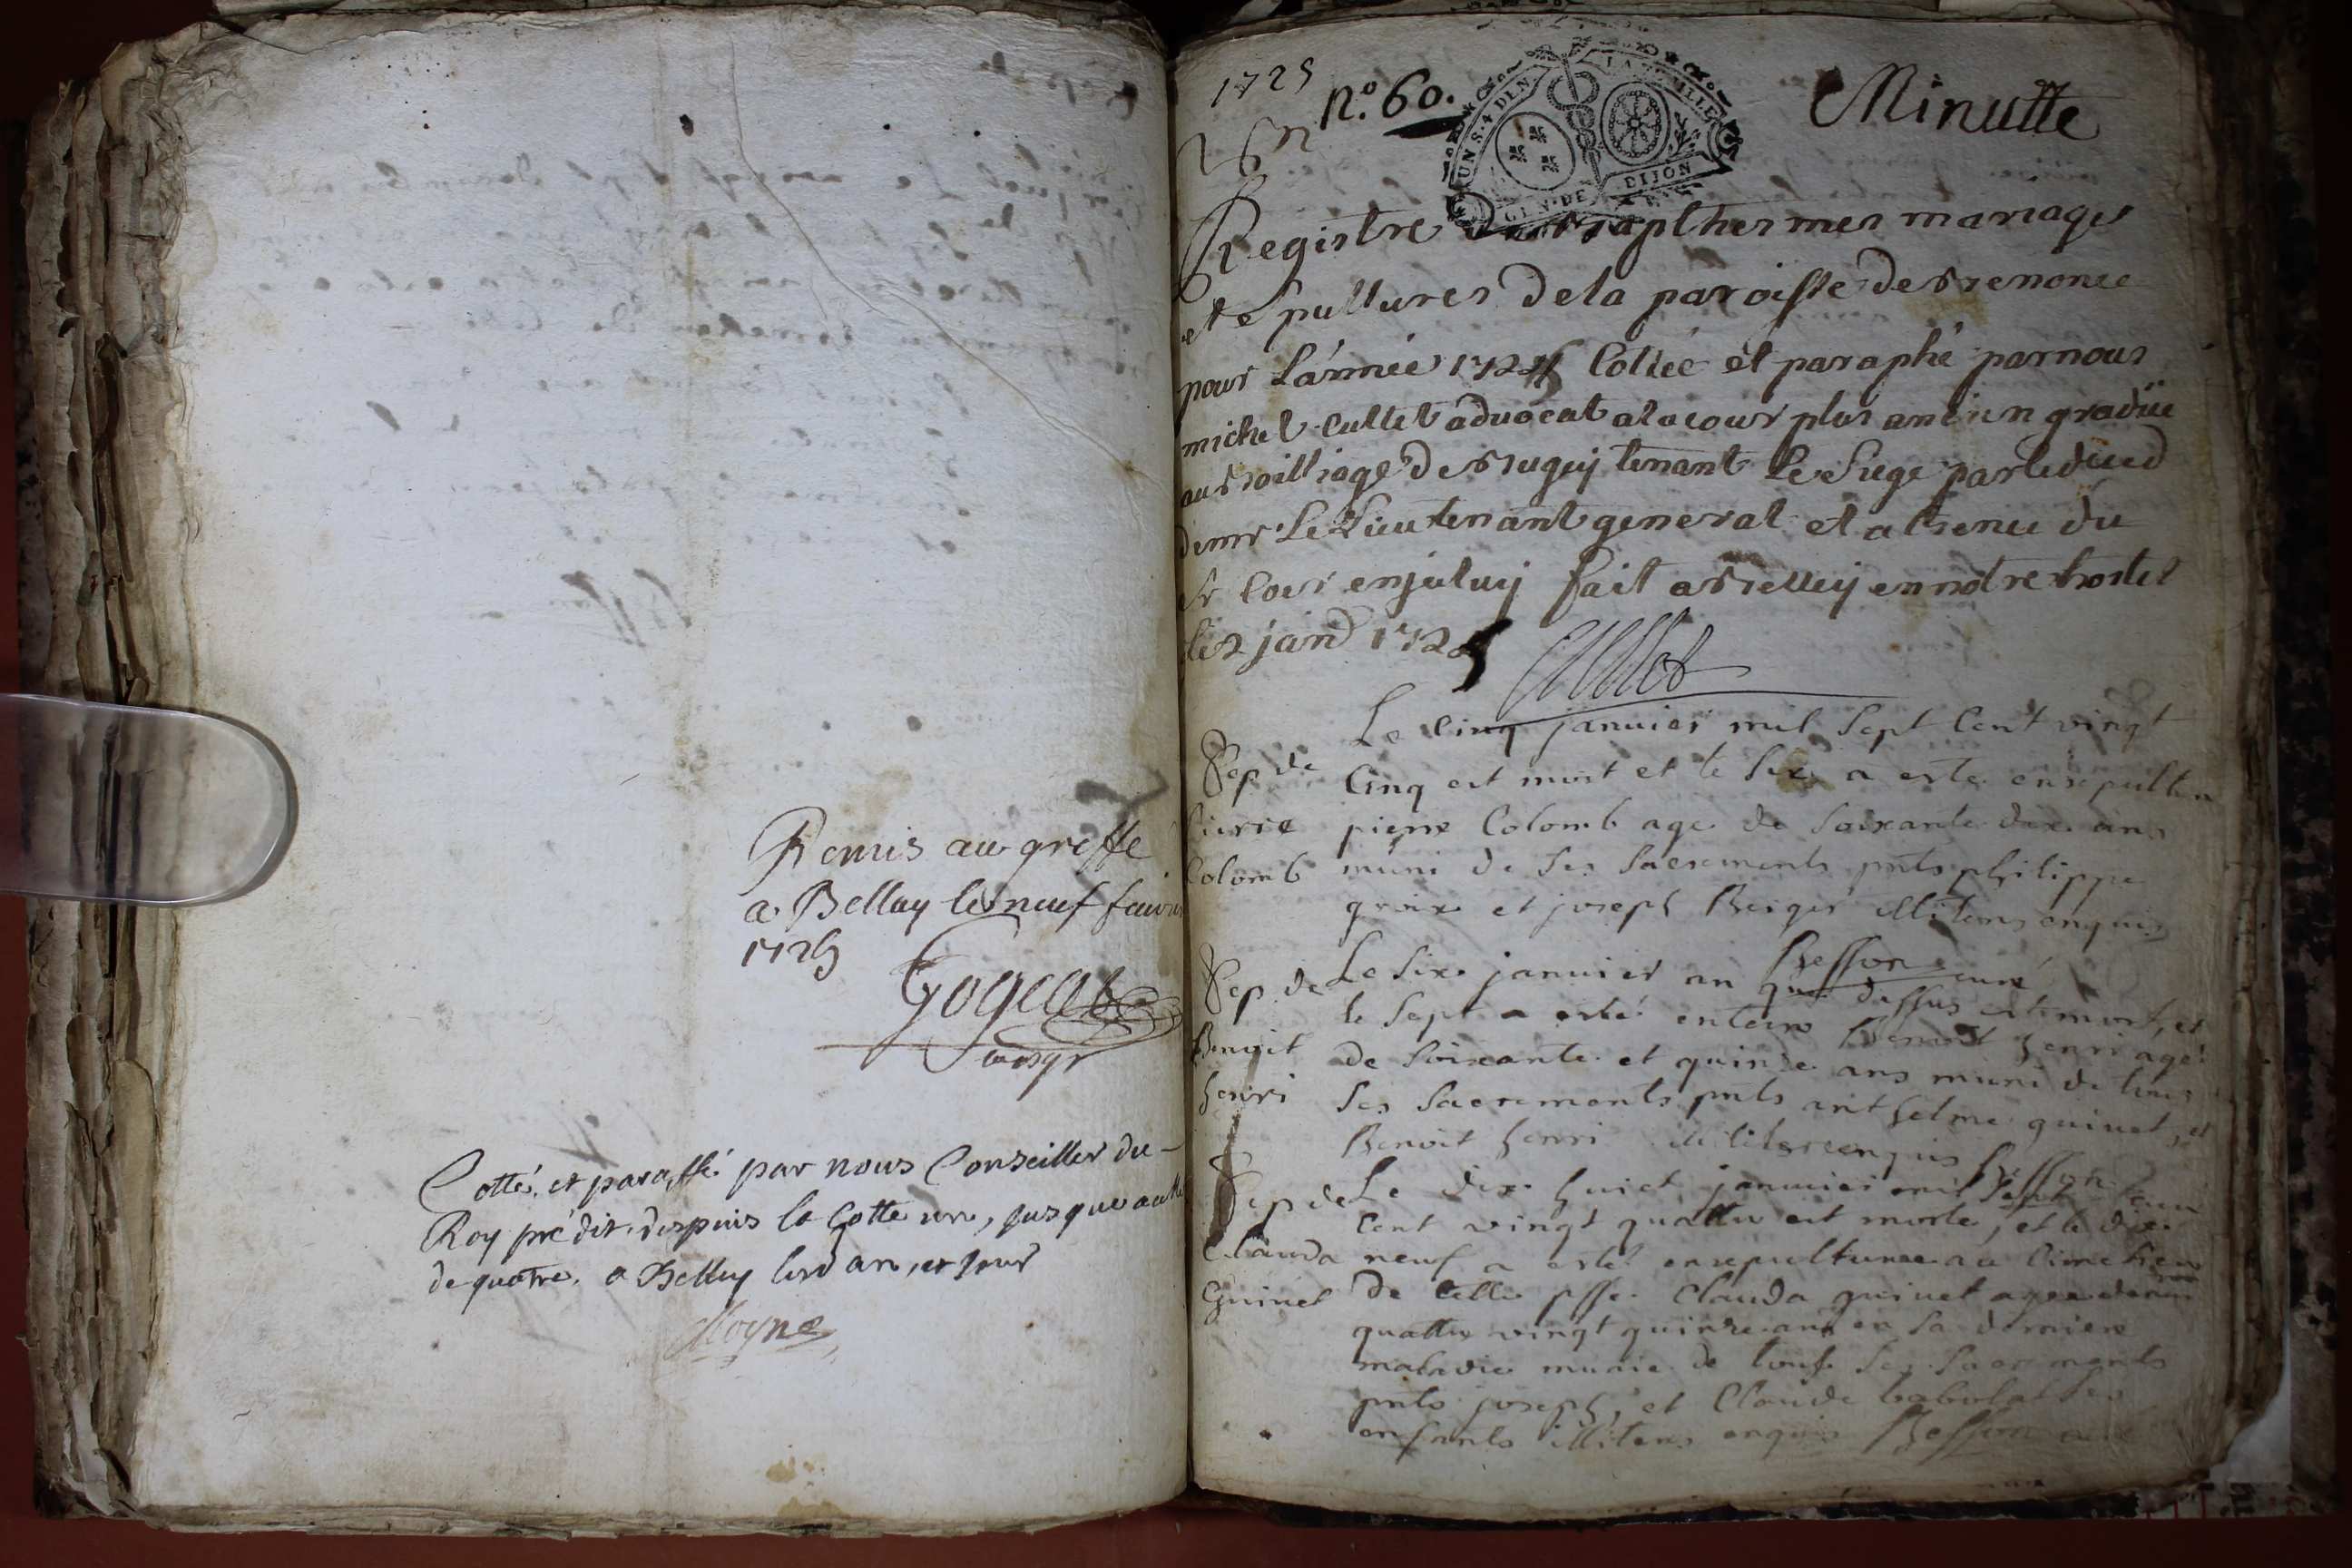 Remis au greffe
a Belley le neuf feuvri
1725
Gogeat
Cotté, et paraffé par nous Conseiller du
Roy prédit despuis la Cotte une, jusque a celle
de quatre. a Belley lesd an, et jour
Moyne
1725 n.º 60. Minutte
UN S. 4 DEN LA FEUILLE
GEN. DE DIJON
Registre des bapthesmes mariages
et sepultures de la paroisse de brenonce
pour L'année 1725 Cottée et paraphé par nous
michel Cullet advocat a la cour plus ancien gradüe
au bailliage de bugey tenant Le siege par le deced
de mr Le Lieutenant general et absence du
fait a belley en notre hostel
le 2 janv 1725 Cullet
Le cinq janvier mil sept Cent vingt
Cinq est mort et le six a esté ensepulture
pierre Colomb age de soixante dix ans
muni de ses sacrements pnts philippe
groix et joseph Berger illiterez enquis
Sep de
Pierre
Colomb
Besson curé
Le six janvier an que dessus est mort, et
le sept a esté enterre Benoit henri agé
de soixante et quinze ans muni de tous
ses sacrements pnts anthelme guinet, et
Benoit henri illiteres enquis Besson curé
Sep. de
Benoit
henri
Le dix huict janvier mil sept
Cent vingt quattre est morte, et le dix
neuf a esté ensepulturee au Cimetiere
de Cette psse Clauda guinet agee
quattre vingt quinze ans en sa derniere
maladie munie de touts ses sacrements
pnts joseph, et Claude babolat ses
enfants illiteres enquis Besson curé
Sep de
Clauda
Guinet